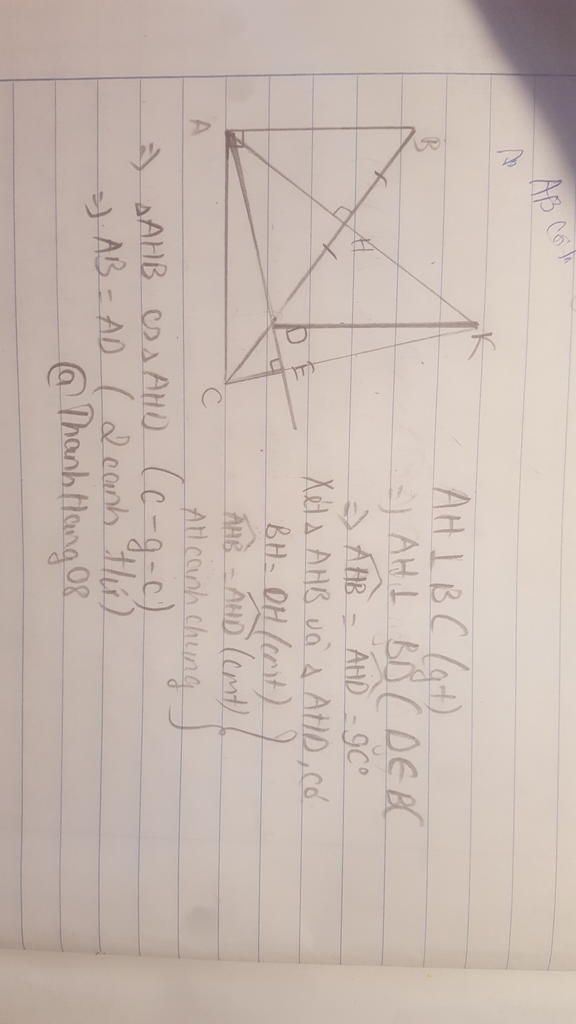 AB cá
A
B
H
K
D
E
C
AH ⊥ BC (gt)
=) AH ⊥ BD ( D ∈ BC
=) AHB = AHD = 90°
Xét Δ AHB và Δ AHD, có
BH = DH (cmt)
AHB = AHD (cmt)
AH cạnh chung
=) Δ AHB = Δ AHD (c-g-c)
=) AB = AD ( 2 cạnh t/ứ)
@ThanhHang08